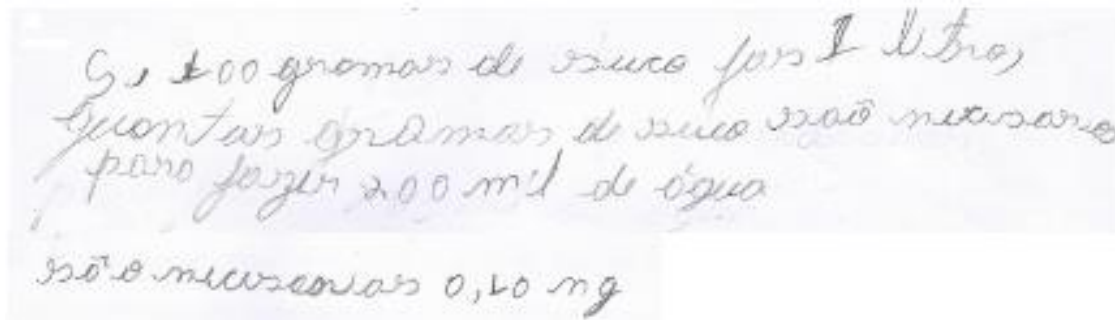 Si 100 gramas de suco fas 1 litro,
quantas gramas de suco saõ necesario
para fazer 200 mil de água
sõo necesarias 0,20 mg